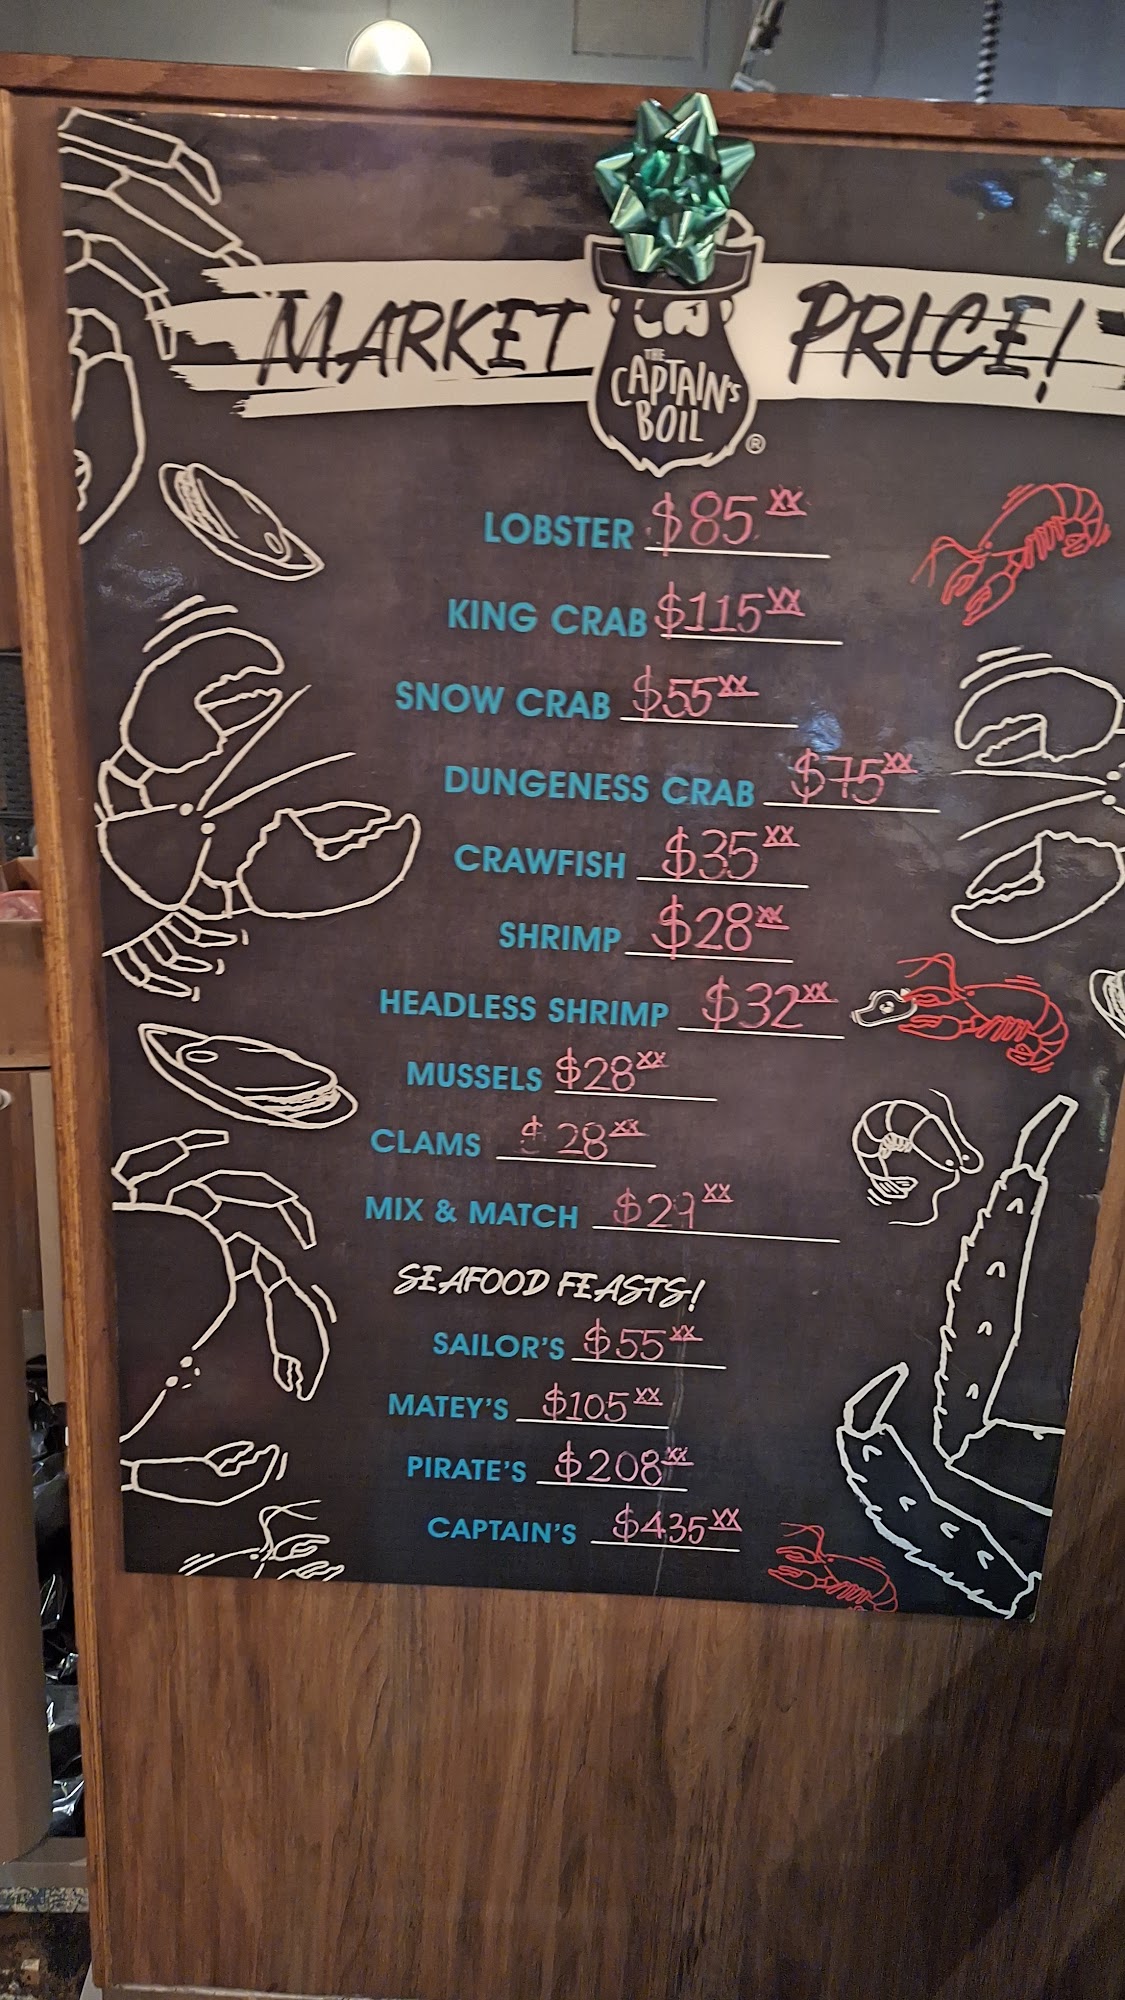 MARKET PRICE!
THE
CAPTAIN'S
BOIL
®
LOBSTER $85.XX
KING CRAB $115XX
SNOW CRAB $55XX
DUNGENESS CRAB $75XX
CRAWFISH $35XX
SHRIMP $28XX
HEADLESS SHRIMP $32XX
MUSSELS $28XX
CLAMS $28XX
MIX & MATCH $29XX
SEAFOOD FEASTS!
SAILOR'S $55XX
MATEY'S $105XX
PIRATE'S $208XX
CAPTAIN'S $435XX